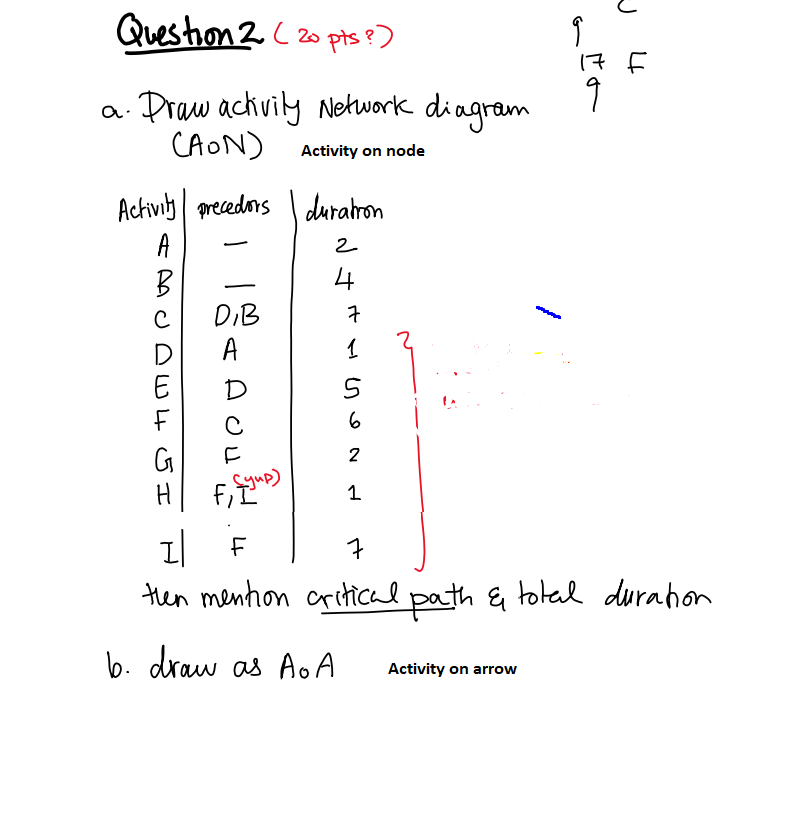 C
Question 2 ( 20 pts ? )
17 F
a. Draw activity Network diagram
(AoN) Activity on node
Activity precedors duration
A — 2
B — 4
C D,B 7
D A 1
E D 5
F C 6
G F 2
(yup)
H F,I 1
I F 7
then mention critical path & total duration
b. draw as AoA Activity on arrow